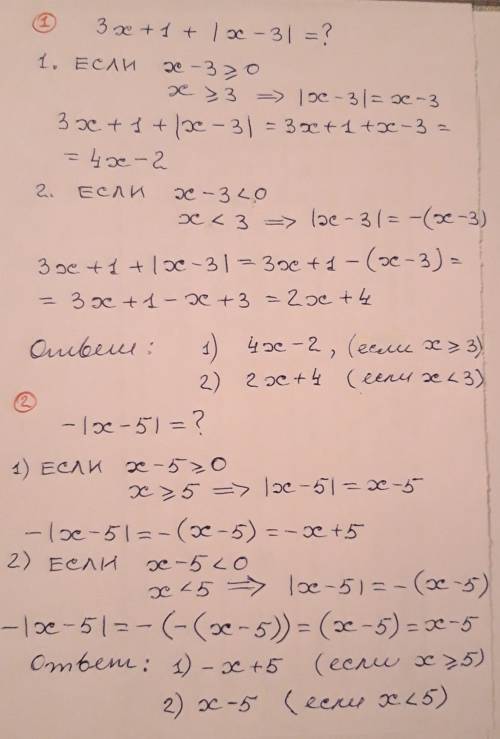 ① 3x+1+|x-3|=?
1. ЕСЛИ x-3⩾0
x⩾3 ⟹ |x-3|=x-3
3x+1+|x-3|=3x+1+x-3=
=4x-2
2. ЕСЛИ x-3<0
x<3 ⟹ |x-3|=-(x-3)
3x+1+|x-3|=3x+1-(x-3)=
=3x+1-x+3=2x+4
Ответ: 1) 4x-2, (если x⩾3)
2) 2x+4 (если x<3)
②
-|x-5|=?
1) ЕСЛИ x-5⩾0
x⩾5 ⟹ |x-5|=x-5
-|x-5|=-(x-5)=-x+5
2) ЕСЛИ x-5<0
x<5 ⟹ |x-5|=-(x-5)
-|x-5|=-(-(x-5))=(x-5)=x-5
Ответ: 1) -x+5 (если x⩾5)
2) x-5 (если x<5)